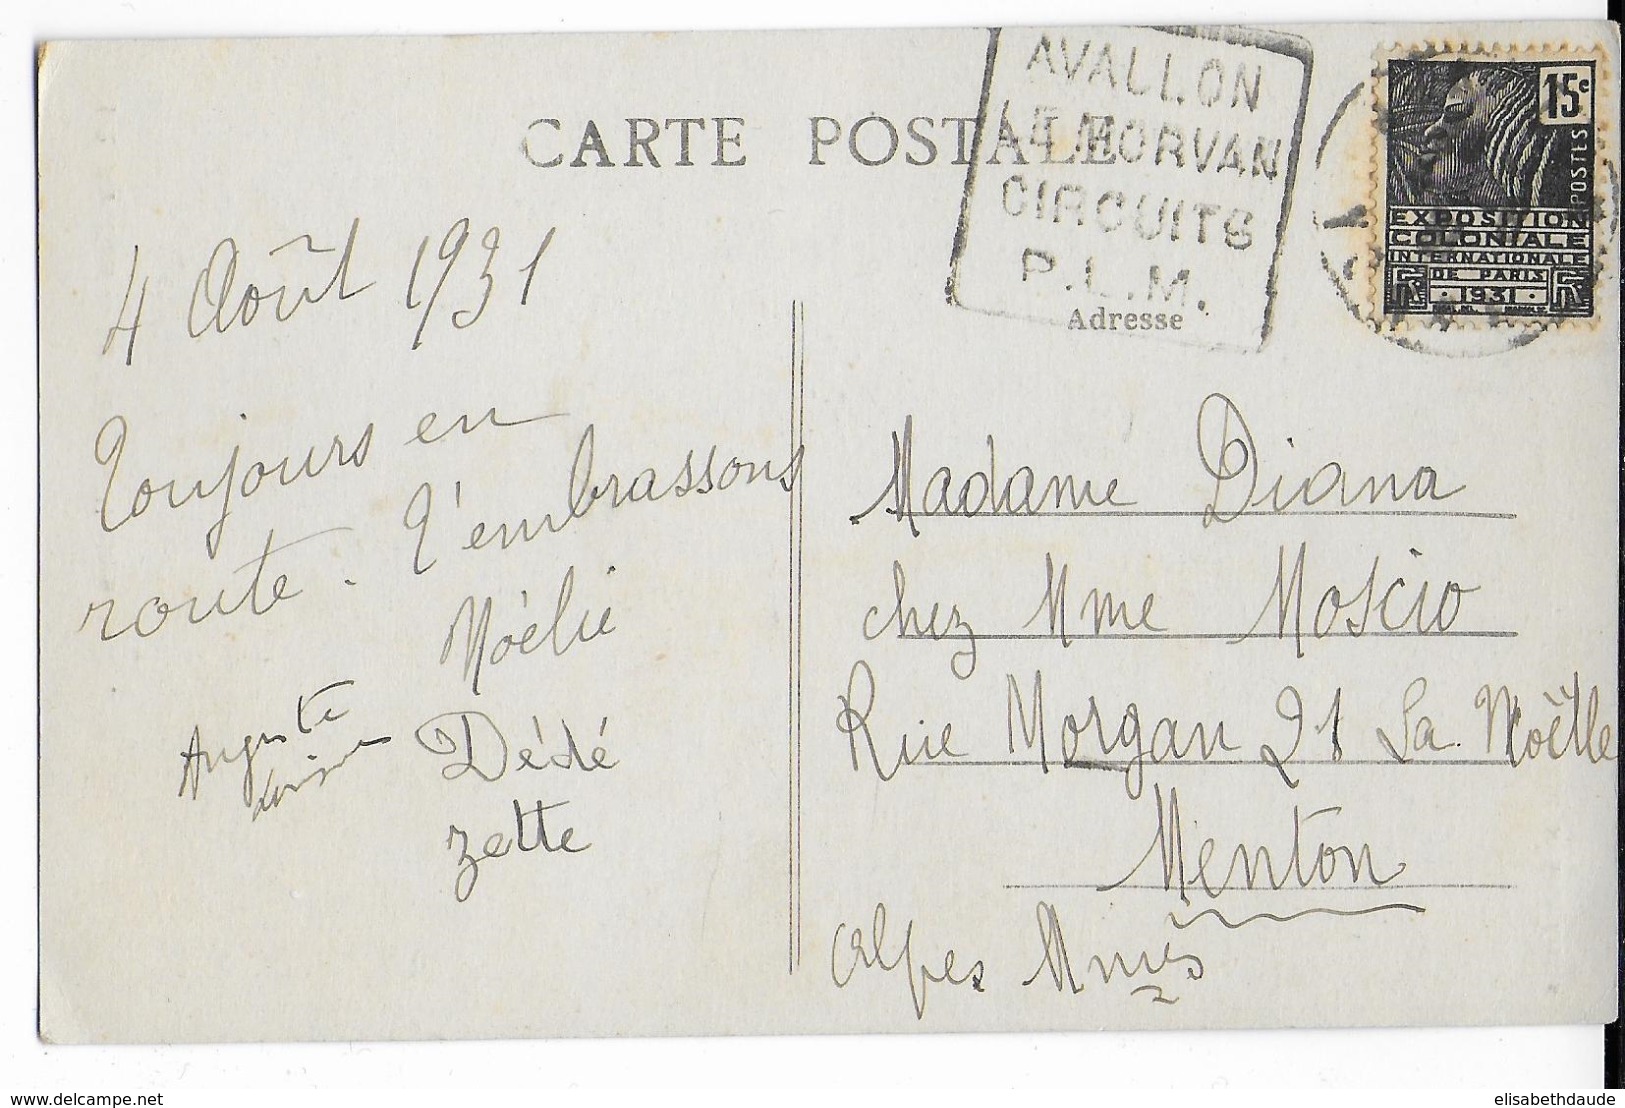 CARTE POSTALE
AVALLON
LE MORVAN
CIRCUITS
P.L.M.
15c
POSTES
EXPOSITION
COLONIALE
INTERNATIONALE
DE PARIS
1931
4 Août 1931
Toujours en
route. T'embrassons
Noëlie
Auguste
Dédé
zette
Adresse
Madame Diana
chez Mme Moscio
Rue Morgan 21 La Noëlle
Menton
Alpes Mmes
www.delcampe.net
elisabethdaude